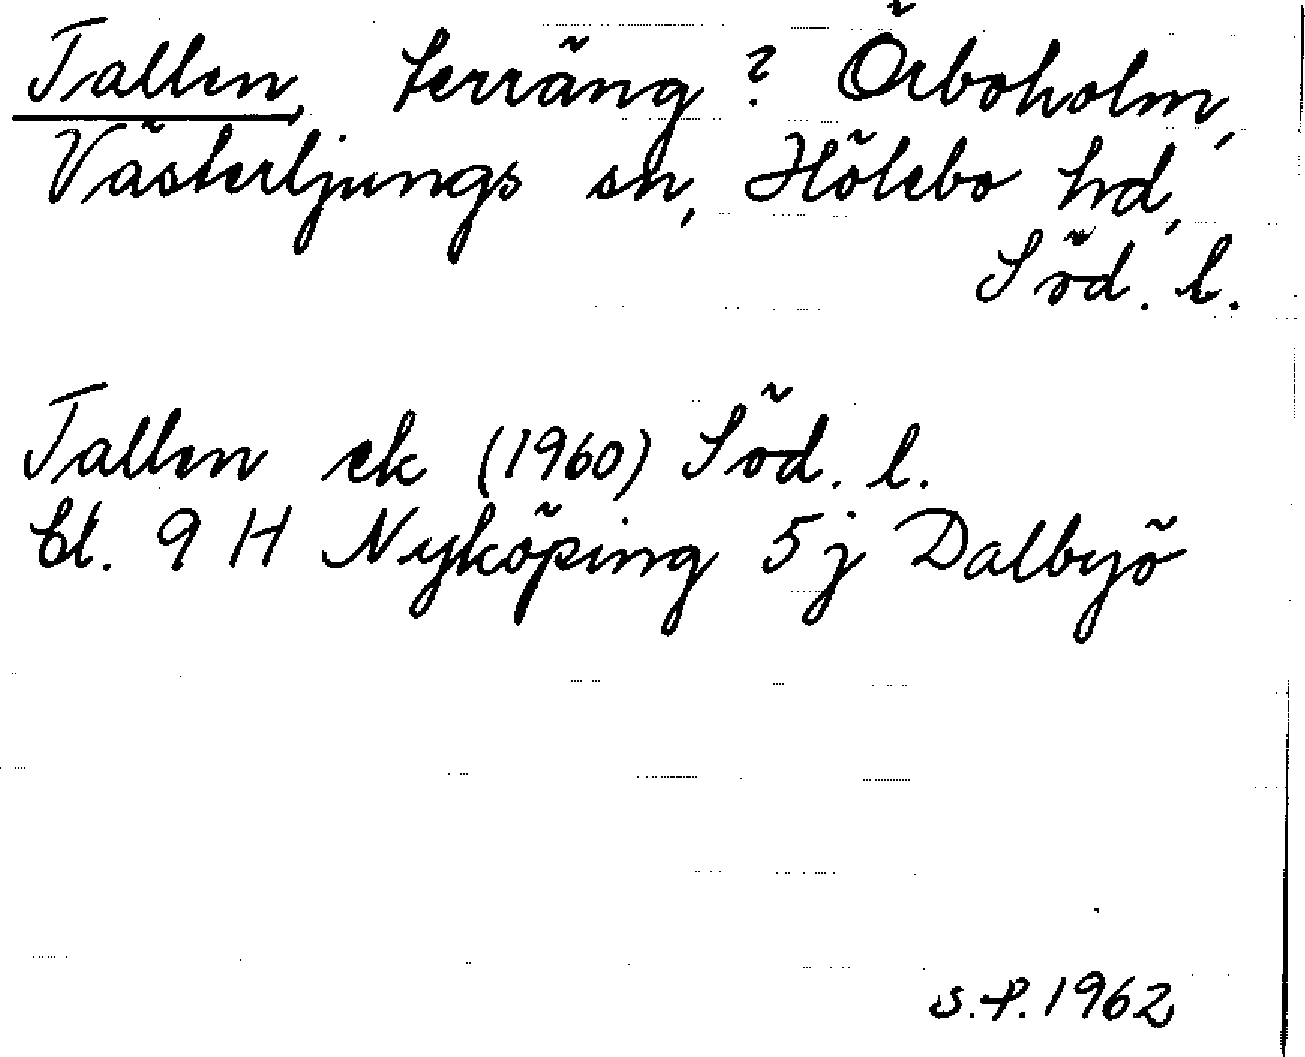 Tallen, terräng? Örboholm,
Västerljungs sn, Hölebo hd,
Söd. l.
Tallen ek (1960) Söd. l.
bl. 9 H Nyköping 5 j Dalbyö
S.P. 1962